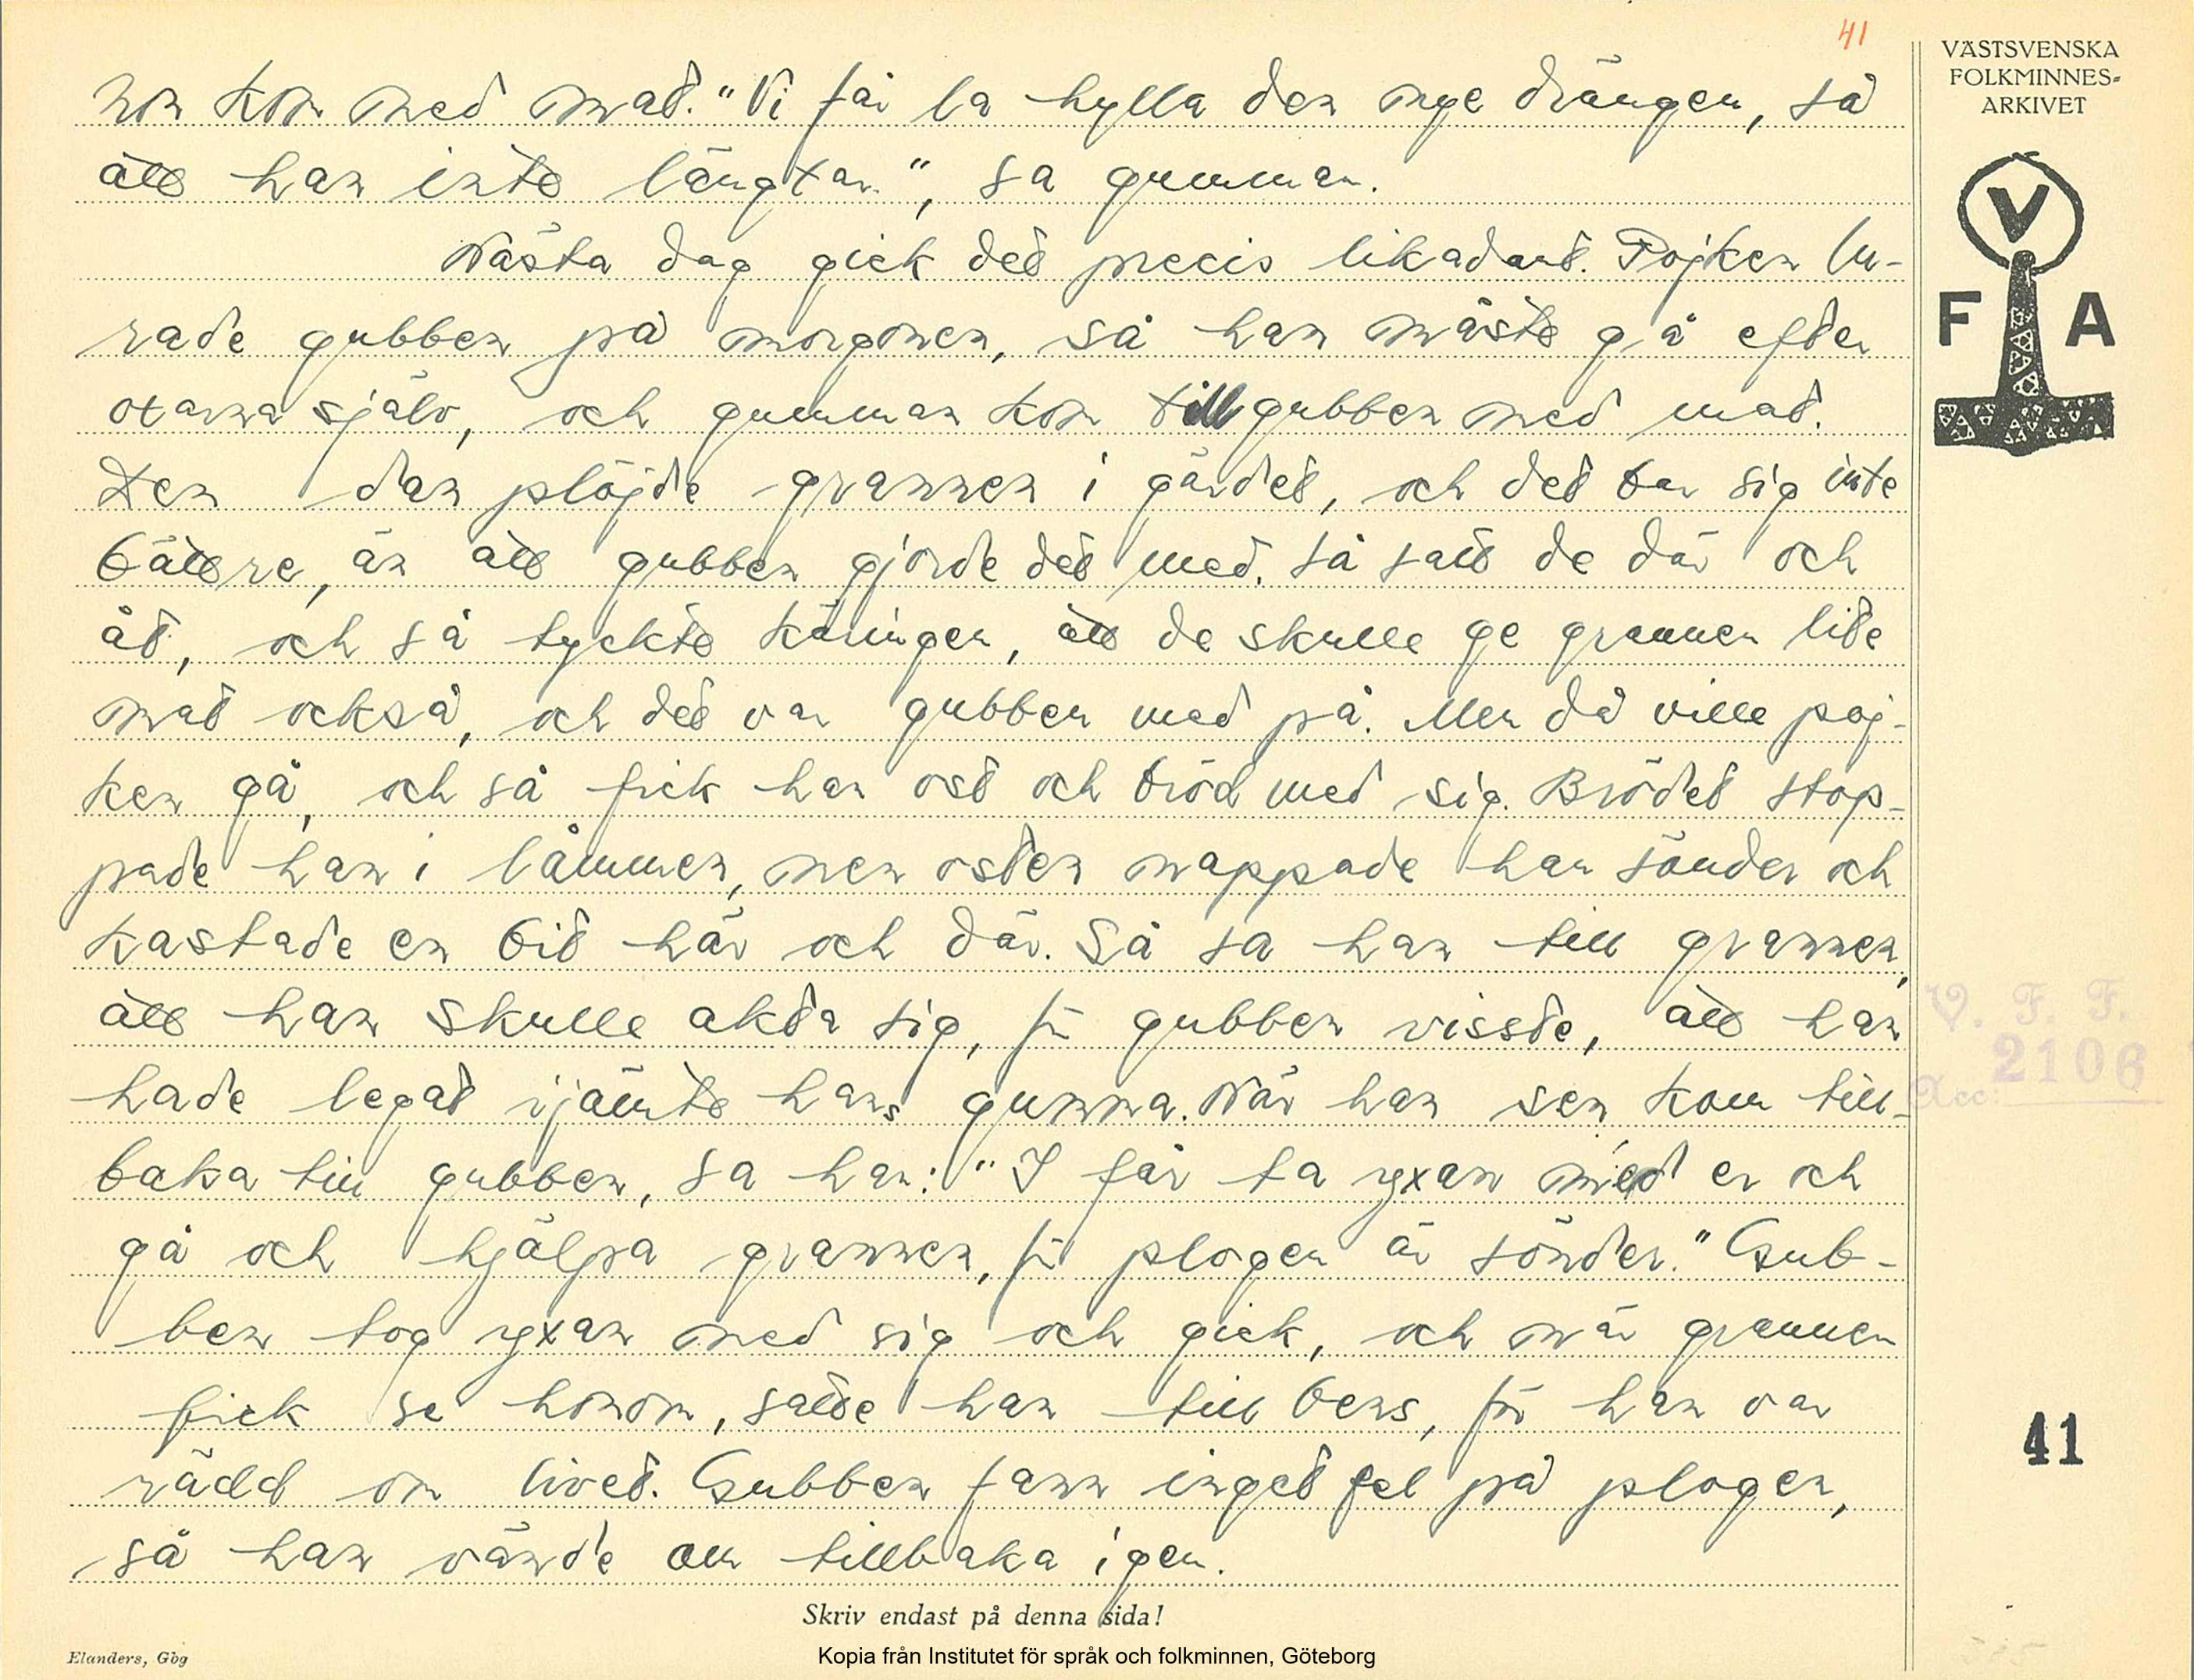 41
hon kom med mat. "Vi får la hylla den nye drängen, så
att han inte längtar.", sa gumman.
Nästa dag gick det precis likadant. Pojken lu-
rade gubben på morgonen, så han måste gå efter
oxarna själv, och gumman kom till gubben med mat.
Den dan plöjde grannen i gärdet, och det bar sig inte
bättre, än att gubben gjorde det med. Så satt de där och
åt, och så tyckte käringen, att de skulle ge grannen lite
mat också, och det var gubben med på. Men då ville poj-
ken gå, och så fick han ost och bröd med sig. Brödet stop-
pade han i låmmen, men osten nappade han sönder och
kastade en bit här och där. Så sa han till grannen,
att han skulle akta sig, för gubben visste, att han
hade legat ijämte hans gumma. När han sen kom till-
baka till gubben, sa han: "I får ta yxan med er och
gå och hjälpa grannen, för plogen är sönder." Gub-
ben tog yxan med sig och gick, och när grannen
fick se honom, satte han till bens, för han var
rädd om livet. Gubben fann inget fel på plogen,
så han vände om tillbaka igen.
Skriv endast på denna sida!
Elanders, Gbg
Kopia från Institutet för språk och folkminnen, Göteborg
VÄSTSVENSKA
FOLKMINNES-
ARKIVET
V
F A
V. F. F.
Acc: 2106
41